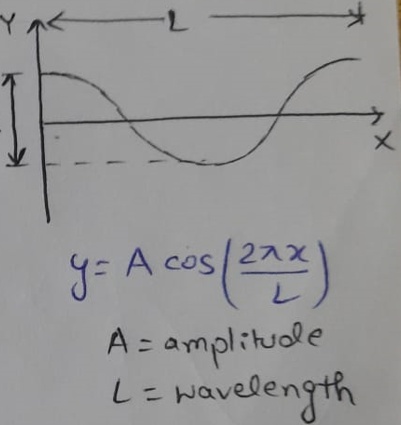 Y
L
X
y = A cos(2πx/L)
A = amplitude
L = wavelength